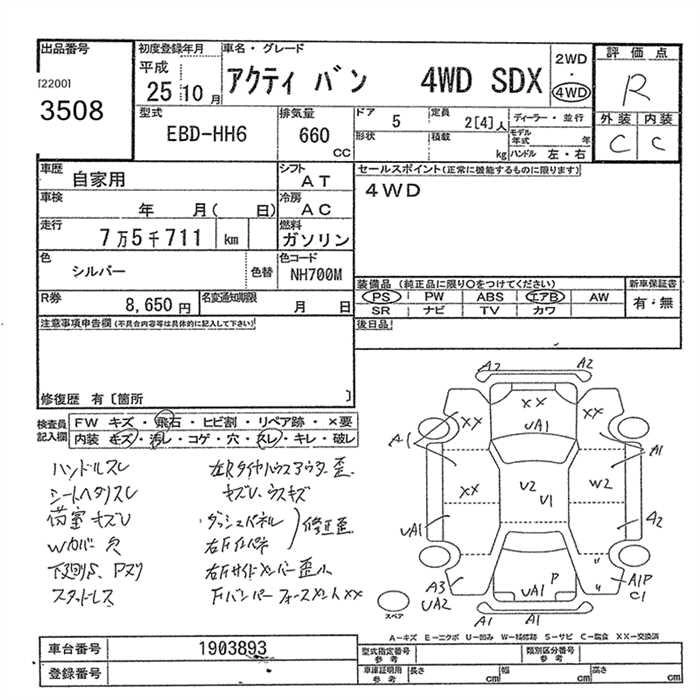 出品番号
[2200]
3508
初度登録年月
平成
25 10 月
車名・グレード
アクティ バン 4WD SDX
2WD
・
4WD
評価点
R
外装 内装
C C
型式
EBD-HH6
排気量
660
CC
ドア
5
定員
2[4]人
ディーラー・並行
形状
積載
kg
モデル年式 年
ハンドル 左・右
車歴
自家用
シフト
AT
車検
年 月( 日)
冷房
AC
走行
7万5千711 km
燃料
ガソリン
色
シルバー
色替
色コード
NH700M
R券
8,650 円
名変通知期限
月 日
セールスポイント(正常に機能するものに限ります)
4WD
装備品 (純正品に限り○をつけてください)
PS PW ABS エアB AW
SR ナビ TV カワ
新車保証書
有・無
後日品
注意事項申告欄(不具合内容等は具体的に記入して下さい)
修復歴 有〔箇所 〕
検査員記入欄
FW キズ・飛石・ヒビ割・リペア跡・×要
内装 キズ・汚レ・コゲ・穴・スレ・キレ・破レ
ハンドルスレ
シートヘタリスレ
荷室キズU
Wカバー欠
下廻りS、Pヌリ
スタッドレス
左Rタイヤハウスアウター歪
キズU、ウスキズ
ダッシュパネル
右Fインパネ
修正歪
右Fサイドメンバー歪小
FバンパーフォースメントXX
A2 A2
XX
UA1
XX XX
A1 A1
XX U2 U1 W2
UA1 A2
P
UA1
A3
UA2
A1P
C1
A1 A1
スペア
A−キズ E−エクボ U−凹み W−補修跡 S−サビ C−腐食 XX−交換済
車台番号
1903893
登録番号
型式指定番号
参考
類別区分番号
参考
車庫証明用
参考
長さ cm 幅 cm 高さ cm